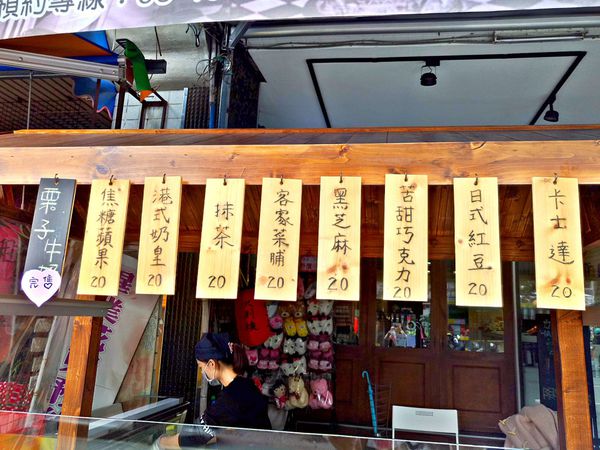 預約專線：
栗子牛奶
完售
焦糖蘋果
20
港式奶皇
20
抹茶
20
客家菜脯
20
黑芝麻
20
苦甜巧克力
20
日式紅豆
20
卡士達
20